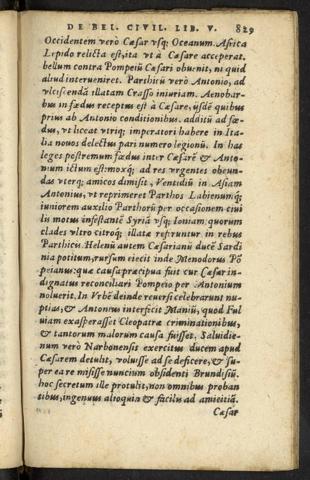 DE BEL. CIVIL. LIB. V. 829
Occidentem verò Cæsar vsq; Oceanum. Africa
Lepido relicta est, ita vt à Cæsare acceperat.
bellum contra Pompeiũ Cæsari obuenit, ni quid
aliud interueniret. Parthicũ verò Antonio, ad
vlciscendã illatam Crasso iniuriam. Aenobar-
bus in fœdus receptus est à Cæsare, ijsdẽ quibus
prius ab Antonio conditionibus. additũ ad fœ-
dus, vt liceat vtriq; imperatori habere in Ita-
lia nouos delectus pari numero legionũ. In has
leges postremum fœdus inter Cæsarẽ & Anto-
nium ictum est: moxq; ad res vrgentes obeun-
das vterq; amicos dimisit, Ventidiũ in Asiam
Antonius, vt reprimeret Parthos Labienumq;
iuniorem auxilio Parthorũ per occasionem ciui
lis motus infestantẽ Syriã vsq; Ioniam: quorum
clades vltro citroq; illatæ referuntur in rebus
Parthicis. Helenũ autem Cæsarianũ ducẽ Sardi
nia potitum, rursum eiecit inde Menodorus Põ
peianus: quæ causa præcipua fuit cur Cæsar in-
dignatus reconciliari Pompeio per Antonium
noluerit. In Vrbẽ deinde reuersi celebrarunt nu-
ptias, & Antonius interficit Maniũ, quod Ful
uiam exasperasset Cleopatræ criminationibus,
& tantorum malorum causa fuisset. Saluidie-
num verò Narbonensis exercitus ducem apud
Cæsarem detulit, voluisse ad se deficere, & su-
per ea re misisse nuncium obsidenti Brundisiũ.
hoc secretum ille protulit, non omnibus proban
tibus, ingenuus alioquin & facilis ad amicitiã.
Cæsar